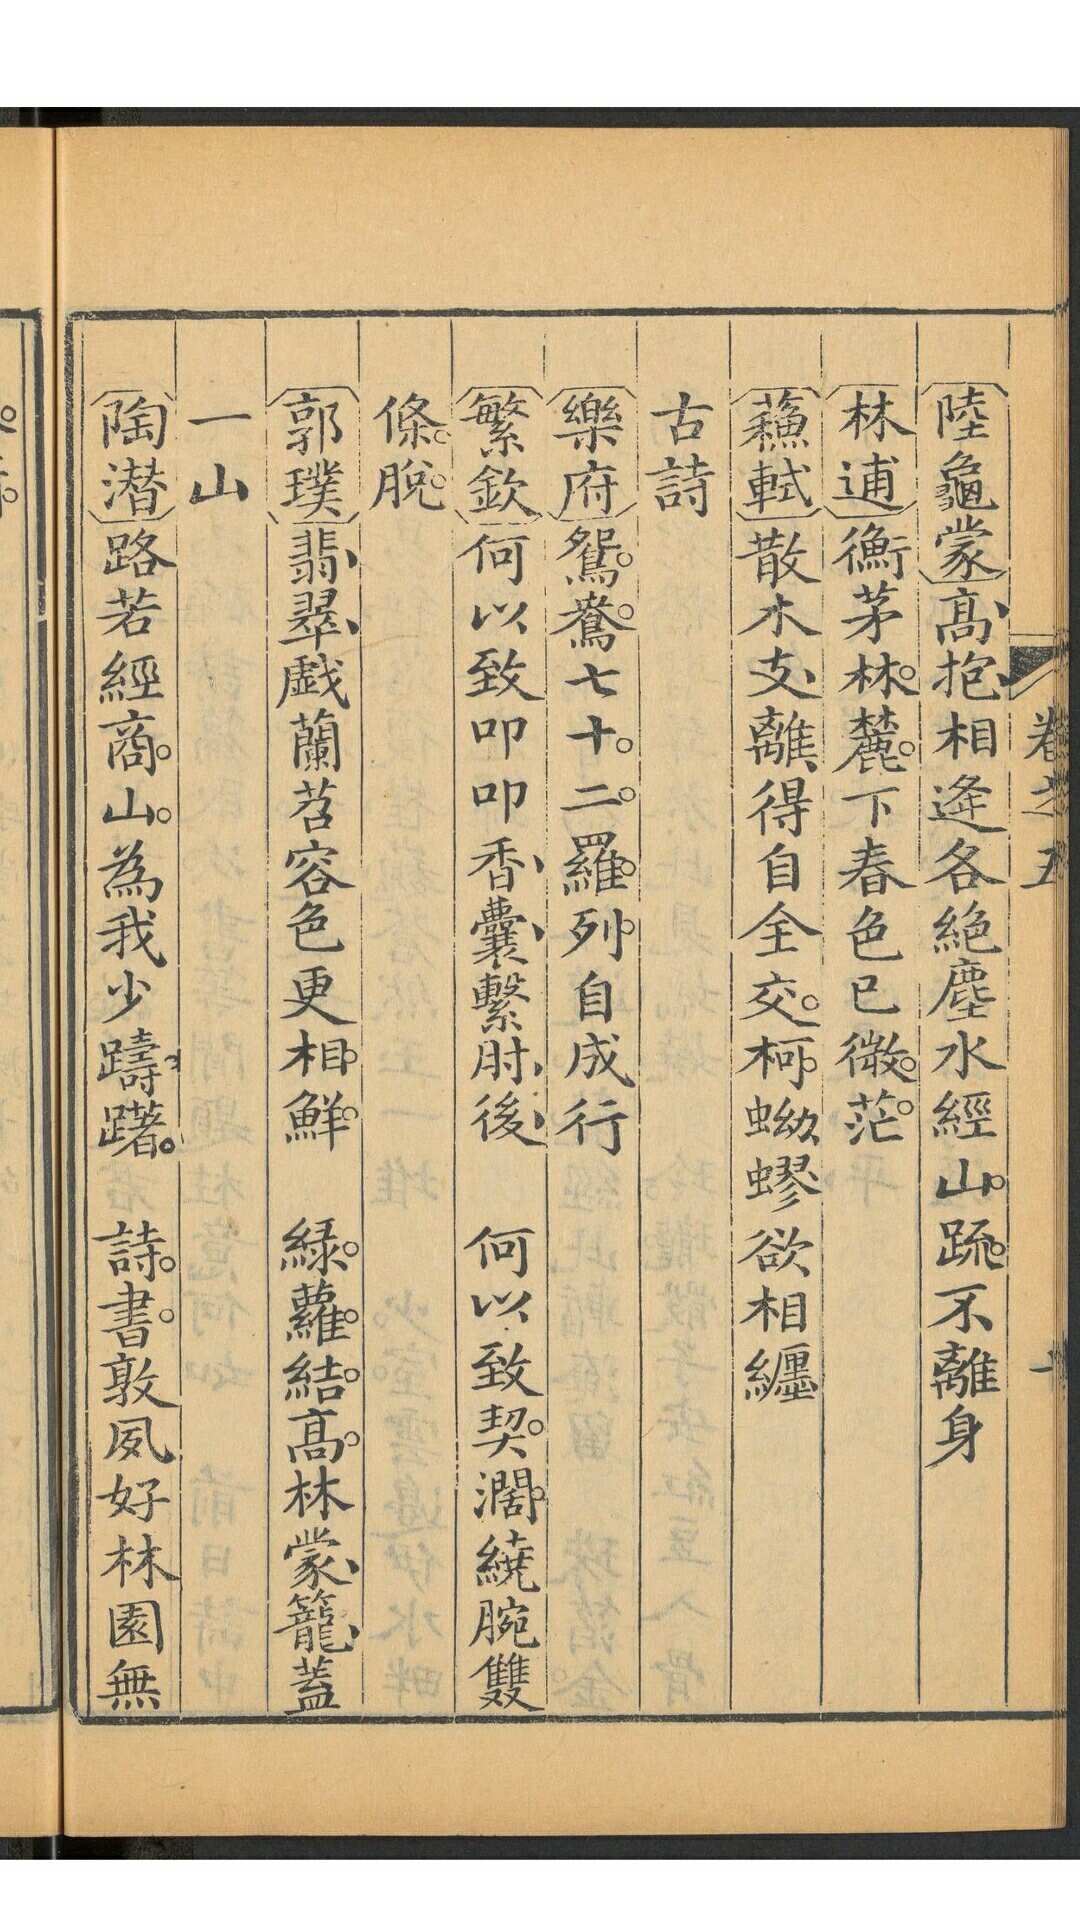 卷之五
陸龜蒙高抱相逢各絕塵水經山疏不離身
林逋衡茅林麓下春色已微茫
蘓軾散木支離得自全交柯蚴蟉欲相纏
古詩
樂府鴛鴦七十二羅列自成行
繁欽何以致叩叩香囊繫肘後 何以致契濶繞腕雙
條脫
郭璞翡翠戲蘭苕容色更相鮮 綠蘿結高林蒙籠蓋
一山
陶潛路若經商山為我少躊躇 詩書敦夙好林園無